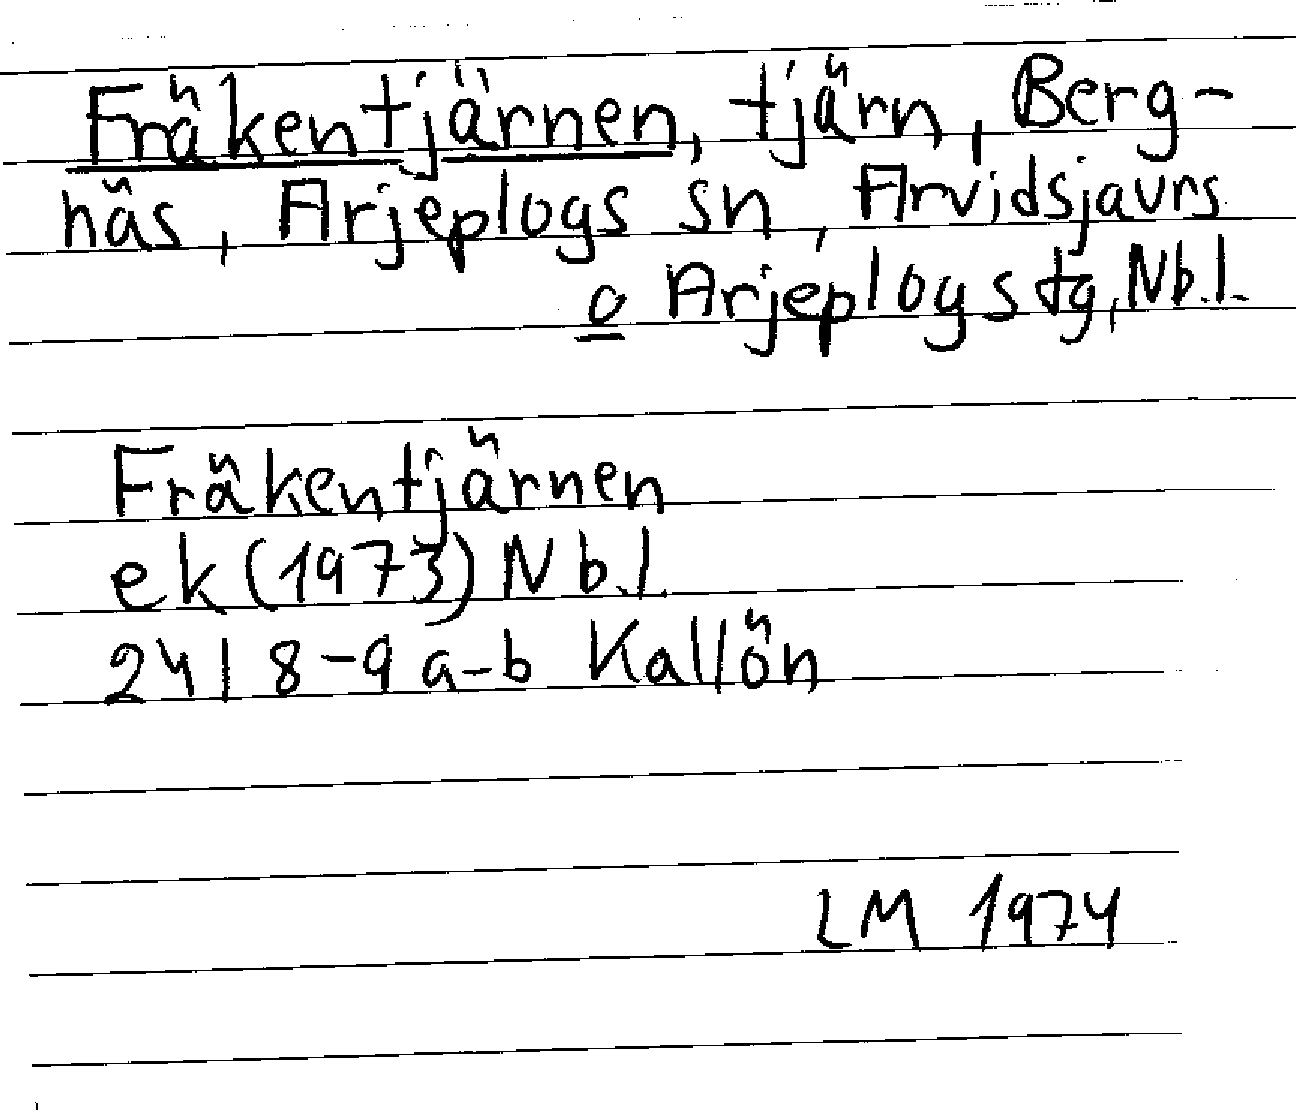 Fräkentjärnen, tjärn, Berg-
näs, Arjeplogs sn, Arvidsjaurs
o Arjeplogs tg, Nb.l.
Fräkentjärnen
ek (1973) Nb.l.
24I 8-9 a-b Kallön
LM 1974